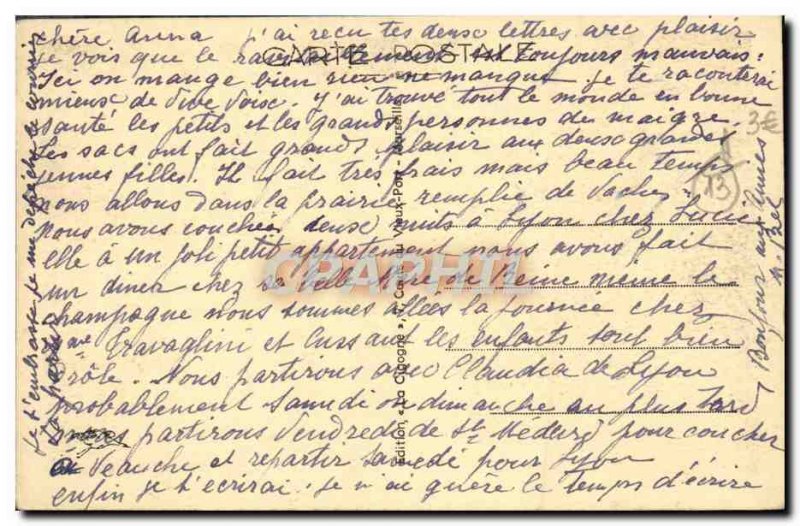 chère Anna j'ai reçu tes deux lettres avec plaisir
je vois que le ravitaillement est toujours mauvais.
CARTE POSTALE
Ici on mange bien rien ne manque je te raconterai
mieux de vive voix. J'ai trouvé tout le monde en bonne
santé les petits et les grands personnes du maigre.
Les sacs ont fait grands plaisir aux deux grandes
jeunes filles. Il fait très frais mais beau temps
nous allons dans la prairie remplie de vaches.
Nous avons couchés deux nuits à Lyon chez Lucie
elle à un joli petit appartement nous avons fait
un diner chez sa belle Mère de Reine même le
champagne nous sommes allées la journée chez
Travaglini et Cussant les enfants sont bien
drôle. Nous partirons avec Claudia de Lyon
probablement Samedi ou dimanche au plus tard
partirons Vendredi de St Médard pour coucher
a Veauche et repartir Samedi pour Lyon
enfin je t'écrirai. Je n'ai guère le temps d'écrire
Bonjour aux
3€
13
Edition «La Cigogne», Vieux-Port - Marseille
CPAPHIL